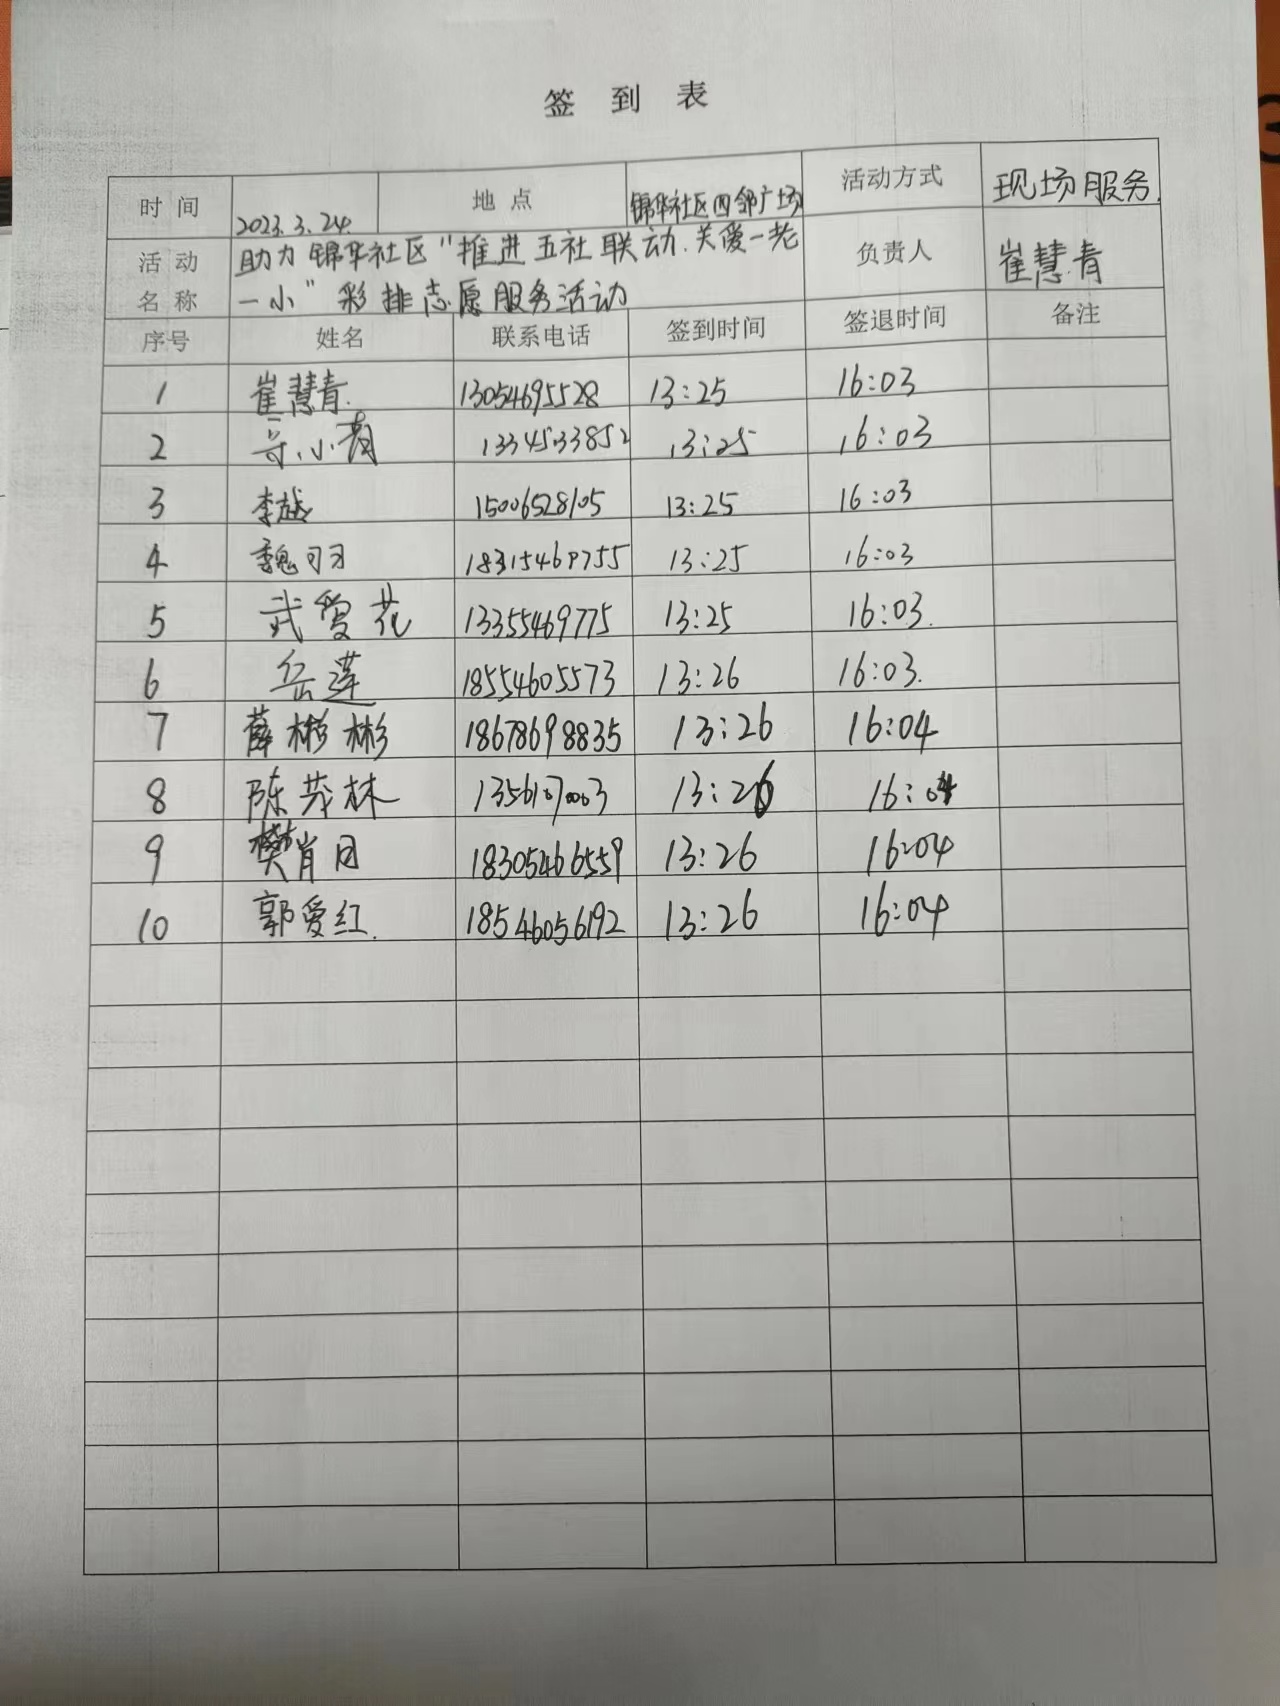 签 到 表
时 间 2023.3.24. 地 点 锦华社区四邻广场 活动方式 现场服务.
活 动 名 称 助力锦华社区"推进五社联动.关爱一老
一小"彩排志愿服务活动 负责人 崔慧青
序号 姓名 联系电话 签到时间 签退时间 备注
1 崔慧青. 13054695528 13:25 16:03
2 小青 13345033852 13:25 16:03
3 李越 15006528105 13:25 16:03
4 魏习习 13:25 16:03
5 武爱花 13355469775 13:25 16:03.
6 岳莲 18554605573 13:26 16:03.
7 薛彬彬 18678698835 13:26 16:04
8 陈茂林 13:26 16:04
9 樊肖月 18305466559 13:26 16:04
10 郭爱红. 18546056192 13:26 16:04